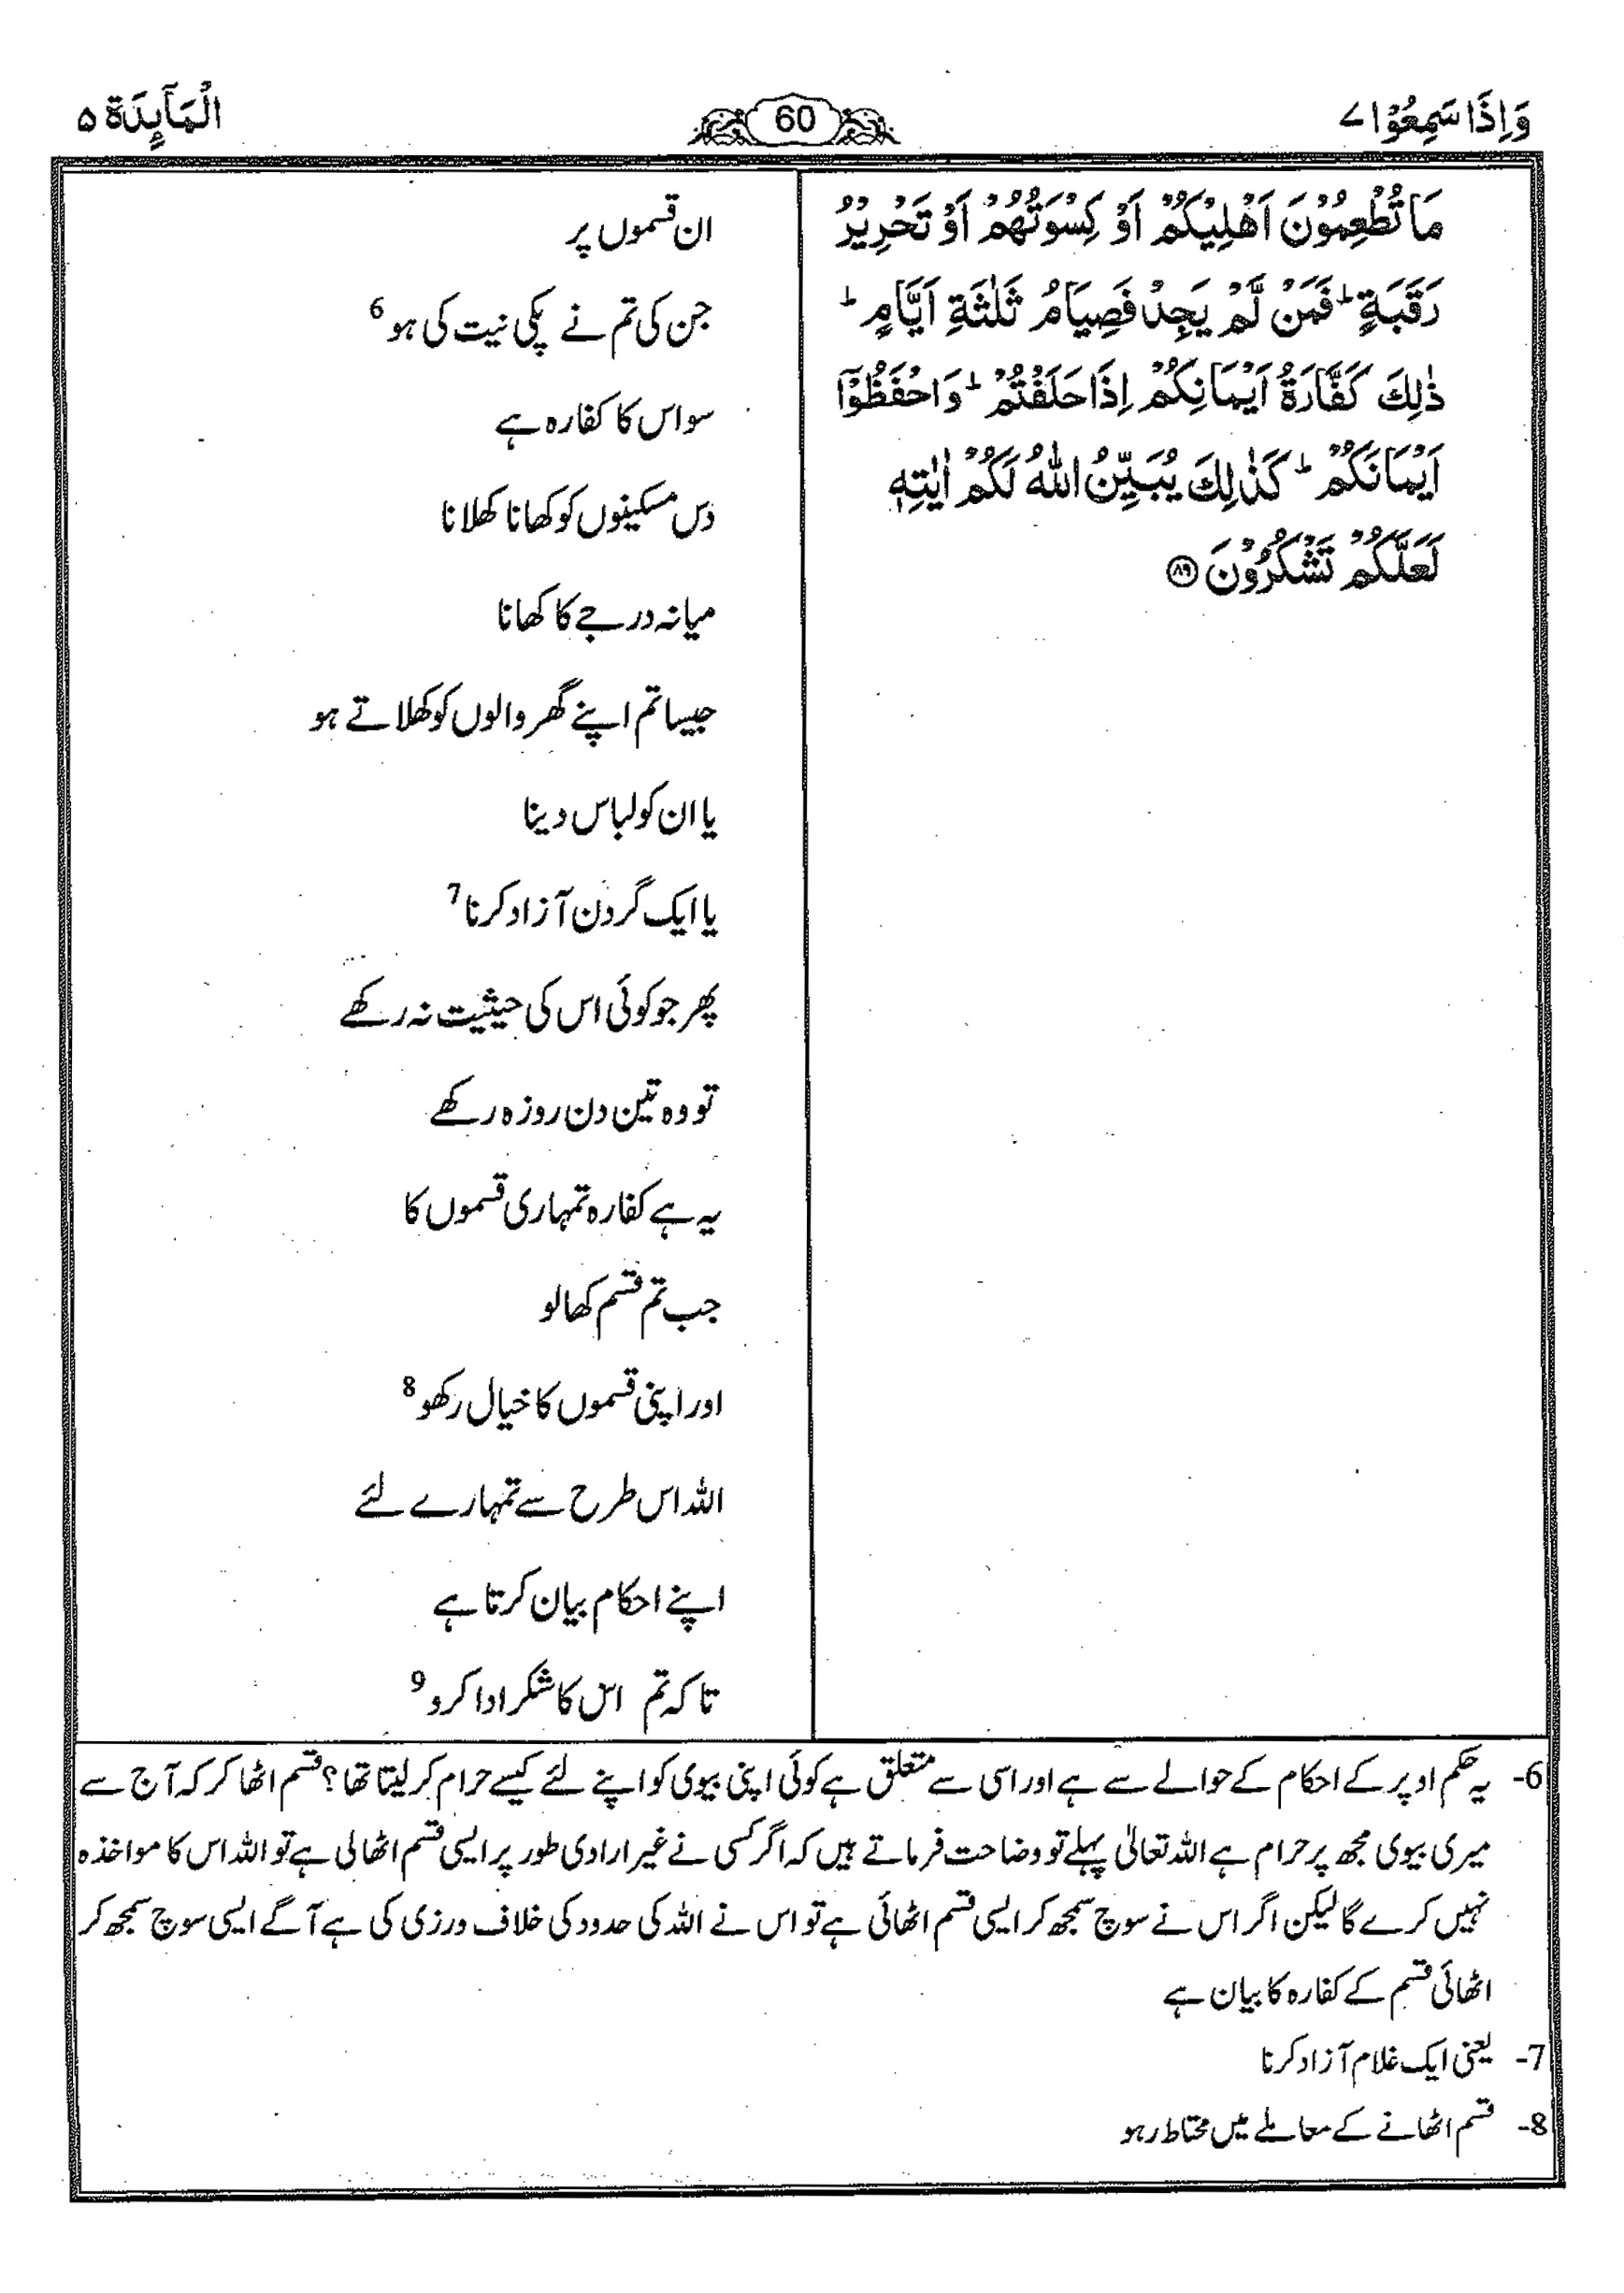 وَاِذَا سَمِعُوْا ۷
60
الْمَآىِٕدَة ۵
مَا تُطْعِمُوْنَ اَهْلِيْكُمْ اَوْ كِسْوَتُهُمْ اَوْ تَحْرِيْرُ
رَقَبَةٍ ؕ فَمَنْ لَّمْ يَجِدْ فَصِيَامُ ثَلٰثَةِ اَيَّامٍ ؕ
ذٰلِكَ كَفَّارَةُ اَيْمَانِكُمْ اِذَا حَلَفْتُمْ ؕ وَاحْفَظُوْٓا
اَيْمَانَكُمْ ؕ كَذٰلِكَ يُبَيِّنُ اللّٰهُ لَكُمْ اٰيٰتِهٖ
لَعَلَّكُمْ تَشْكُرُوْنَ ۸۹
ان قسموں پر
جن کی تم نے پکی نیت کی ہو 6
سو اس کا کفارہ ہے
دس مسکینوں کو کھانا کھلانا
میانہ درجے کا کھانا
جیسا تم اپنے گھر والوں کو کھلاتے ہو
یا ان کو لباس دینا
یا ایک گردن آزاد کرنا 7
پھر جو کوئی اس کی حیثیت نہ رکھے
تو وہ تین دن روزہ رکھے
یہ ہے کفارہ تمہاری قسموں کا
جب تم قسم کھالو
اور اپنی قسموں کا خیال رکھو 8
اللہ اس طرح سے تمہارے لئے
اپنے احکام بیان کرتا ہے
تاکہ تم اس کا شکر ادا کرو 9
6- یہ حکم اوپر کے احکام کے حوالے سے ہے اور اسی سے متعلق ہے کوئی اپنی بیوی کو اپنے لئے کیسے حرام کر لیتا تھا؟ قسم اٹھا کر کہ آج سے
میری بیوی مجھ پر حرام ہے اللہ تعالیٰ پہلے تو وضاحت فرماتے ہیں کہ اگر کسی نے غیر ارادی طور پر ایسی قسم اٹھالی ہے تو اللہ اس کا مواخذہ
نہیں کرے گا لیکن اگر اس نے سوچ سمجھ کر ایسی قسم اٹھائی ہے تو اس نے اللہ کی حدود کی خلاف ورزی کی ہے آگے ایسی سوچ سمجھ کر
اٹھائی قسم کے کفارہ کا بیان ہے
7- یعنی ایک غلام آزاد کرنا
8- قسم اٹھانے کے معاملے میں محتاط رہو